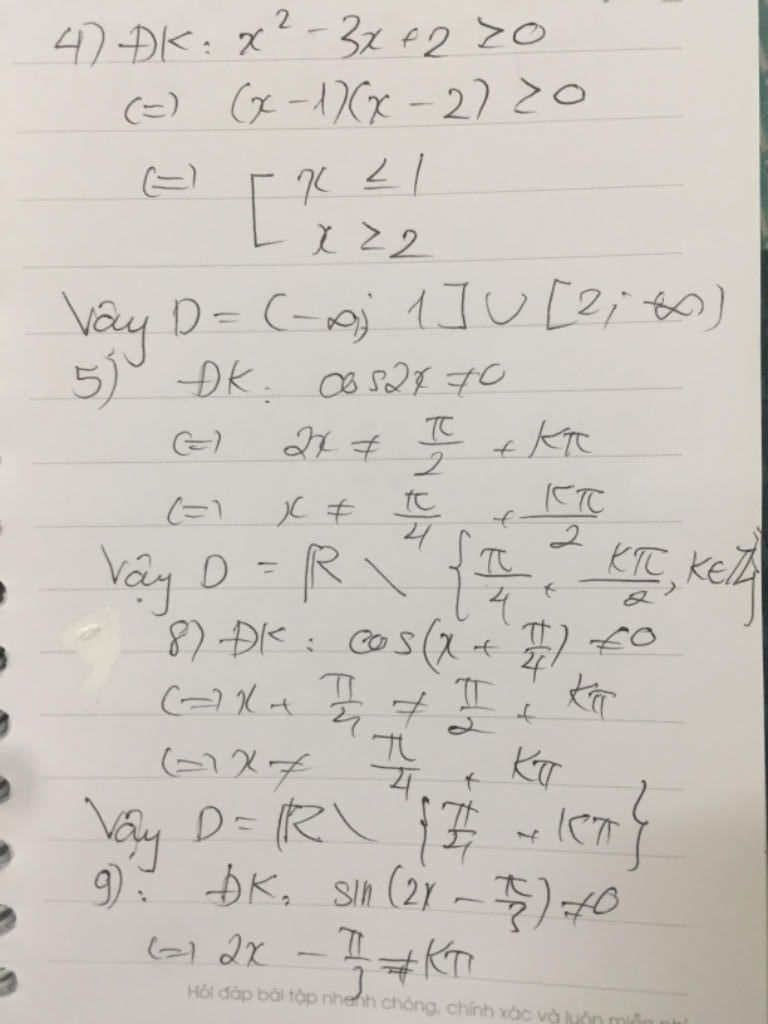 4) ĐK: x² - 3x + 2 ≥ 0
(=) (x - 1)(x - 2) ≥ 0
(=) [ x ≤ 1
x ≥ 2
Vậy D = (-∞; 1] ∪ [2; +∞)
5) ĐK: cos2x ≠ 0
(=) 2x ≠ π/2 + Kπ
(=) x ≠ π/4 + Kπ/2
Vậy D = ℝ \ {π/4 + Kπ/2, K∈ℤ}
8) ĐK: cos(x + π/4) ≠ 0
(=) x + π/4 ≠ π/2 + Kπ
(=) x ≠ π/4 + Kπ
Vậy D = ℝ \ {π/4 + Kπ}
9): ĐK: sin(2x - π/3) ≠ 0
(=) 2x - π/3 ≠ Kπ
Hỏi đáp bài tập nhanh chóng, chính xác và luôn miễn phí